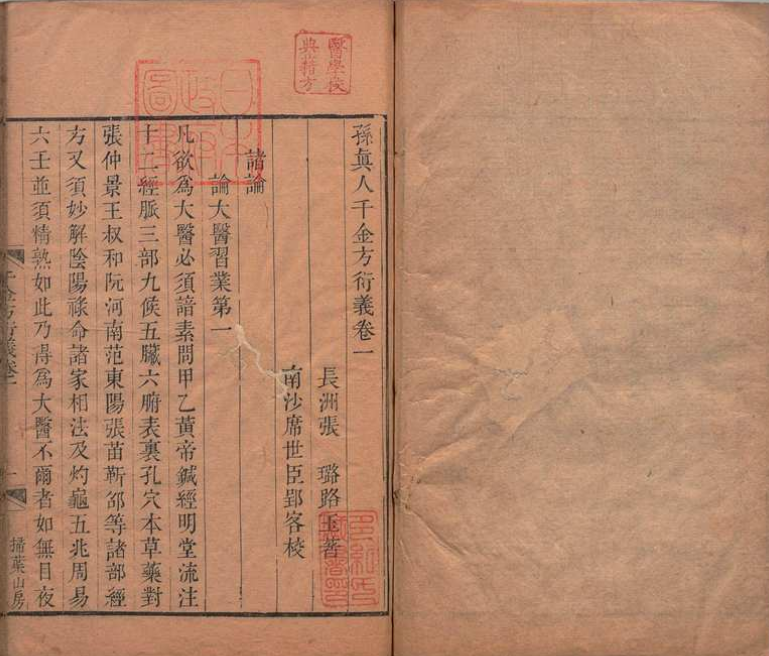 孫真人千金方衍義卷一
長洲張　璐路玉著
南沙席世臣郢客校
諸論
論大醫習業第一
凡欲為大醫必須諳素問甲乙黃帝鍼經明堂流注
十二經脈三部九候五臟六腑表裏孔穴本草藥對
張仲景王叔和阮河南范東陽張苗靳邵等諸部經
方又須妙解陰陽祿命諸家相法及灼龜五兆周易
六壬並須精熟如此乃得為大醫不爾者如無目夜
千金方衍義卷一
一
掃葉山房
醫學校
典藉方